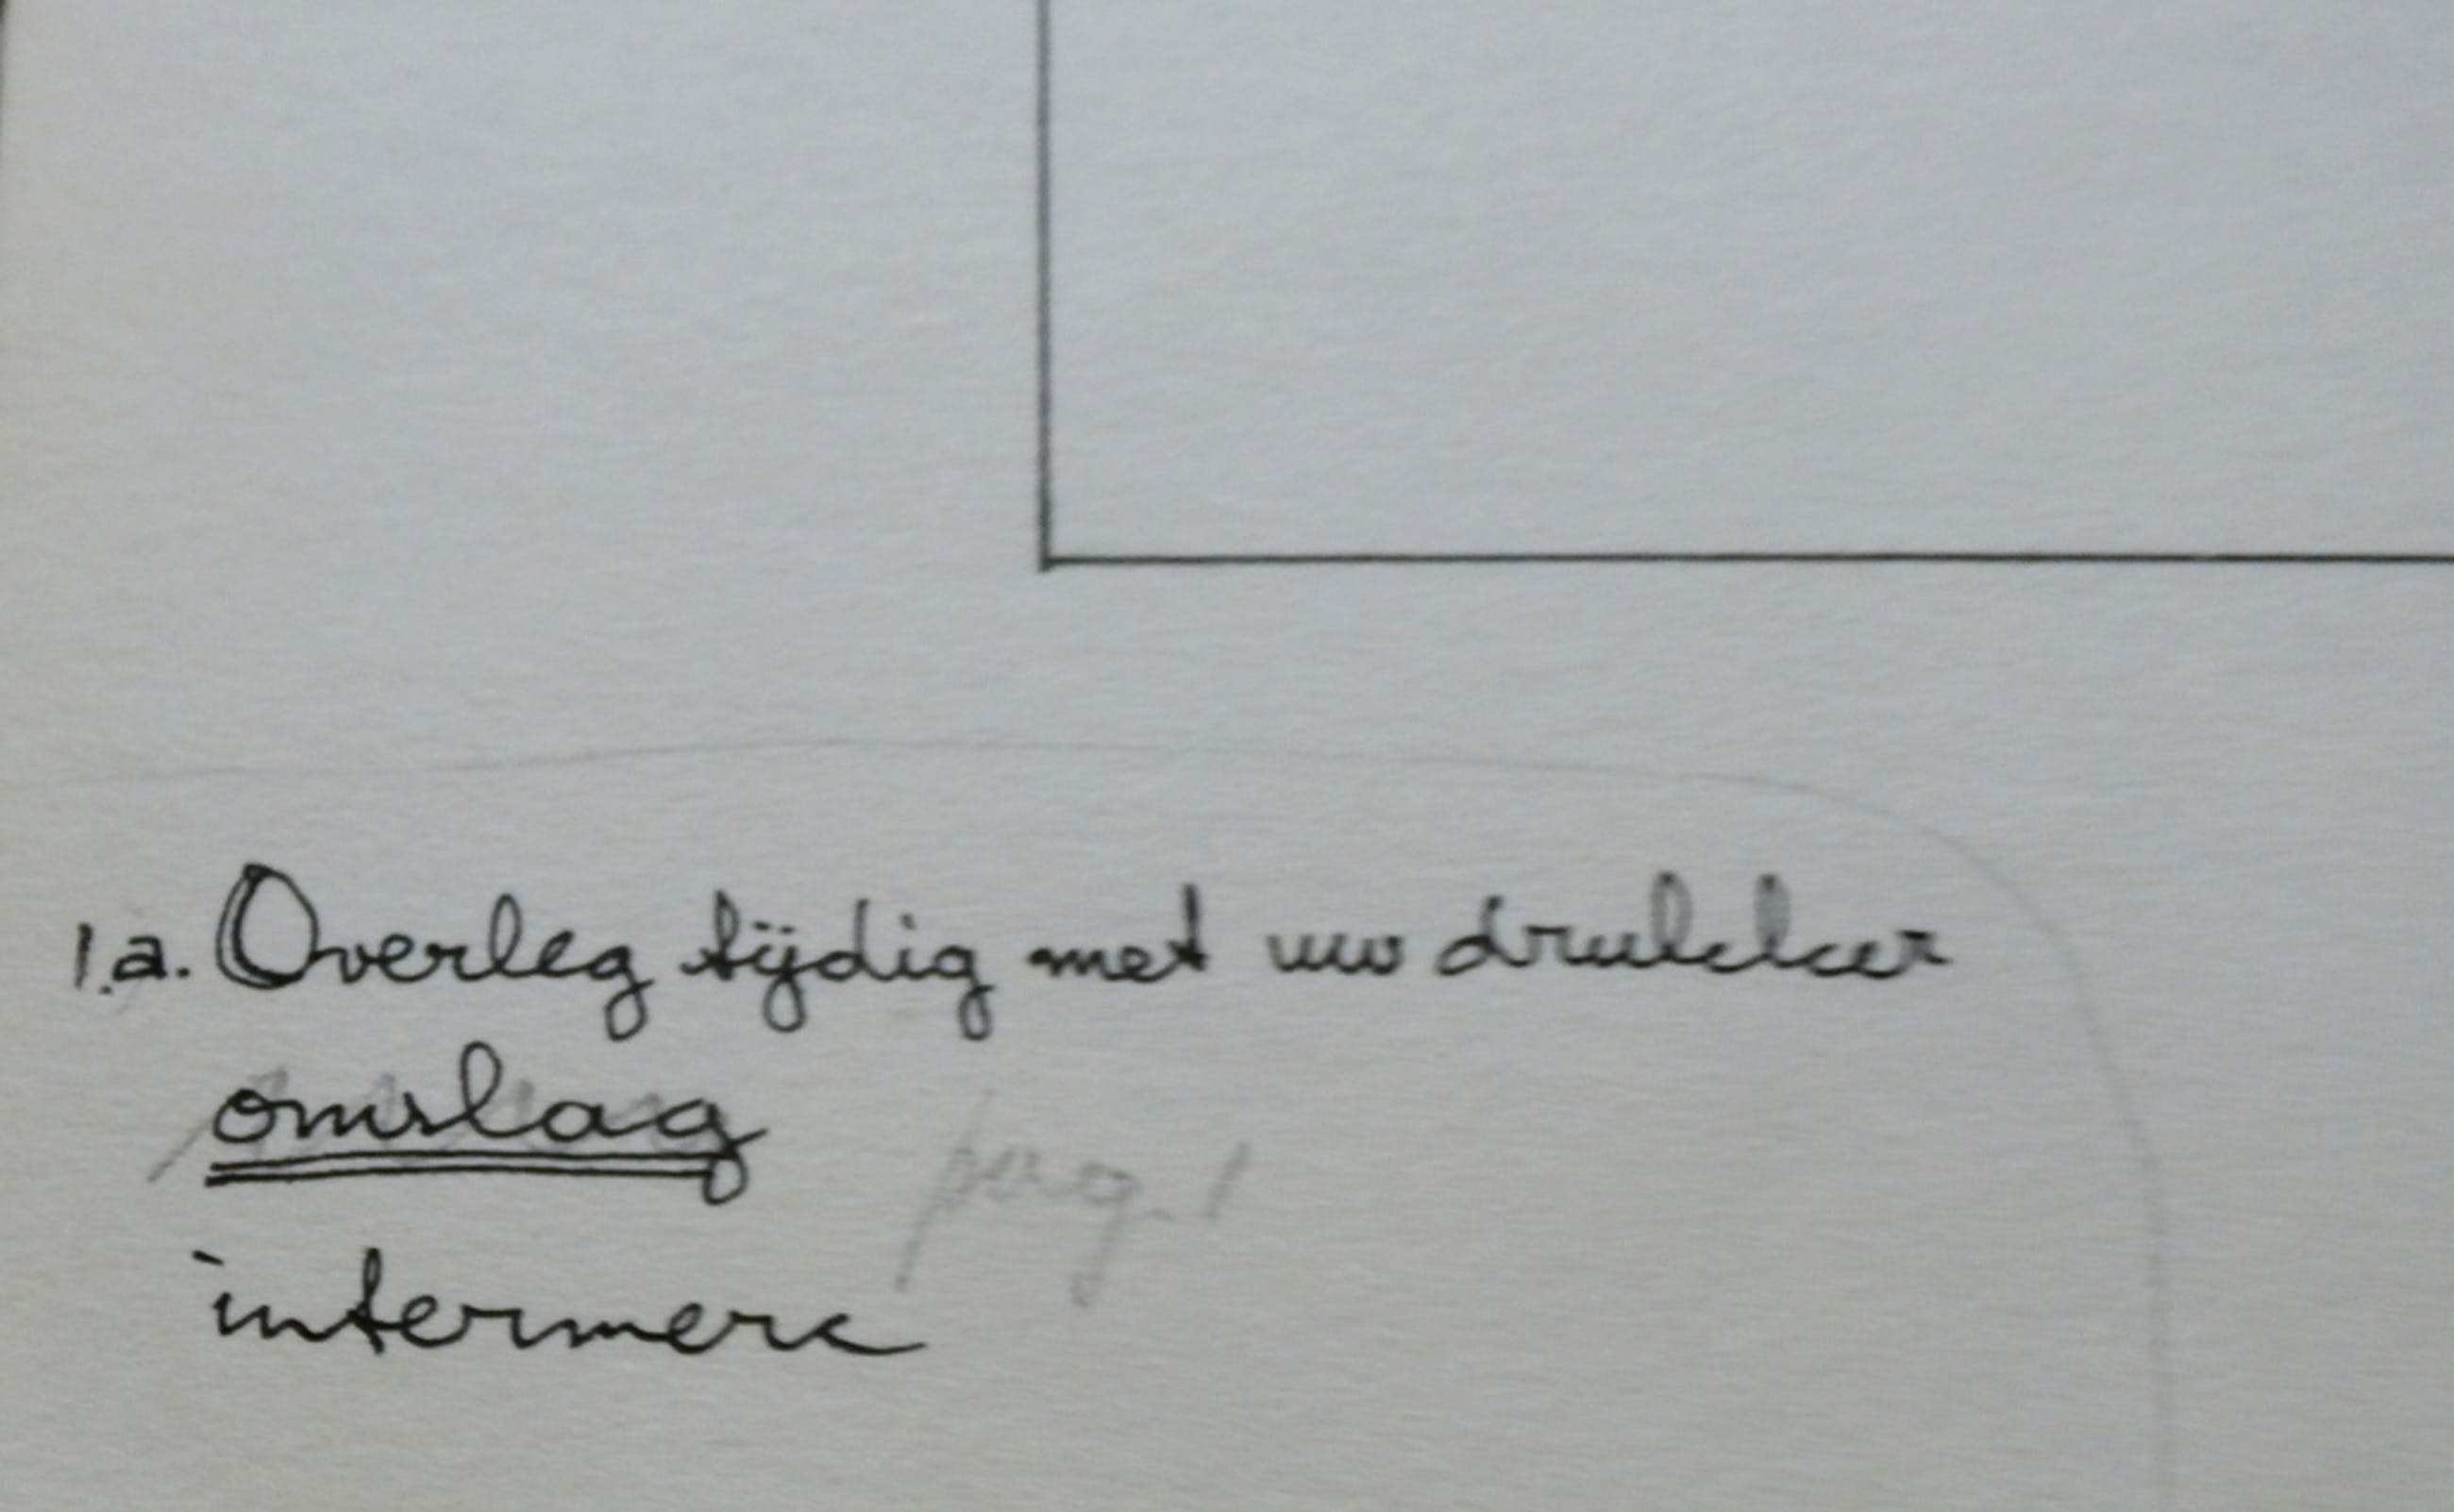 1.a. Overleg tijdig met uw drukker
omslag
intermerc